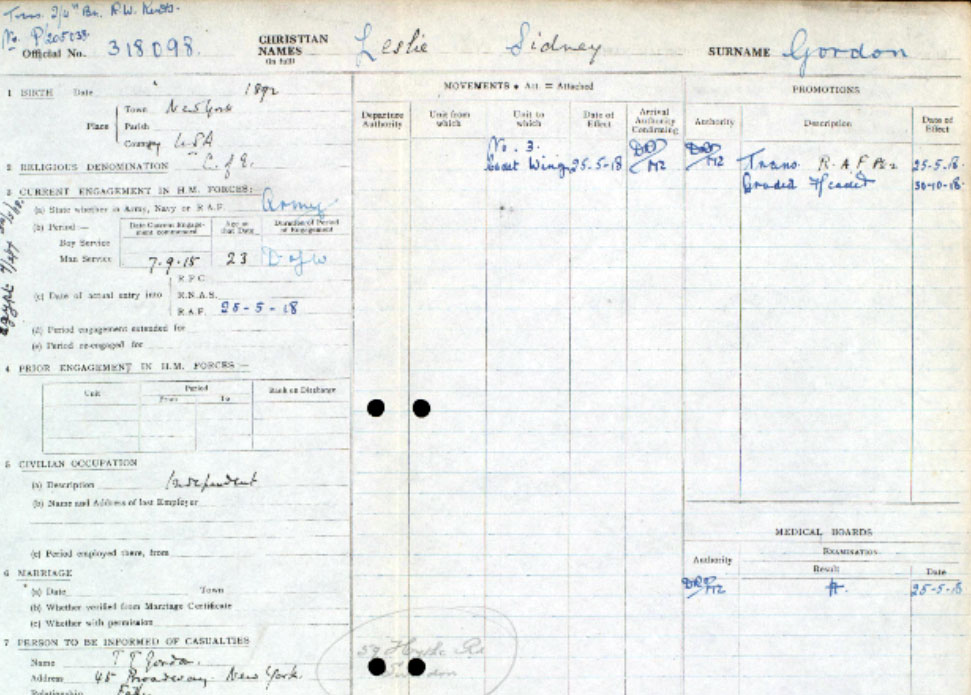 Trans. 2/4th Bn. R.W. Kents.
No. P/205038
Official No. 318098.
CHRISTIAN NAMES (in full) Leslie Sidney
SURNAME Gordon
1 BIRTH Date 1892
Place Town New York
Parish
Country USA
2 RELIGIOUS DENOMINATION C. of E.
3 CURRENT ENGAGEMENT IN H.M. FORCES:
(a) State whether in Army, Navy or R.A.F. Army
(b) Period — Date Current Engagement commenced Age at that Date Duration of Period of Engagement
Boy Service
Man Service 7-9-15 23 D of W
(c) Date of actual entry into R.F.C.
R.N.A.S.
R.A.F. 25-5-18
(d) Period engagement extended for
(e) Period re-engaged for
Egypt
4 PRIOR ENGAGEMENT IN H.M. FORCES —
Unit Period Rank on Discharge
From To
5 CIVILIAN OCCUPATION
(a) Description Independent
(b) Name and Address of last Employer
(c) Period employed there, from
6 MARRIAGE
(a) Date Town
(b) Whether verified from Marriage Certificate
(c) Whether with permission
7 PERSON TO BE INFORMED OF CASUALTIES
Name Gordon.
Address 45 Broadway. New York
Relationship
MOVEMENTS • Att. = Attached
Departure Authority Unit from which Unit to which Date of Effect Arrival Authority Confirming
No. 3.
Wing 25-5-18 DRO/M2
59 Hythe Rd
Swindon
PROMOTIONS
Authority Description Date of Effect
DRO/M2 Trans. R.A.F. 25-5-18.
Graded F/cadet 30-10-18.
MEDICAL BOARDS
Authority EXAMINATION
Result Date
DRO/M2 A. 25-5-18